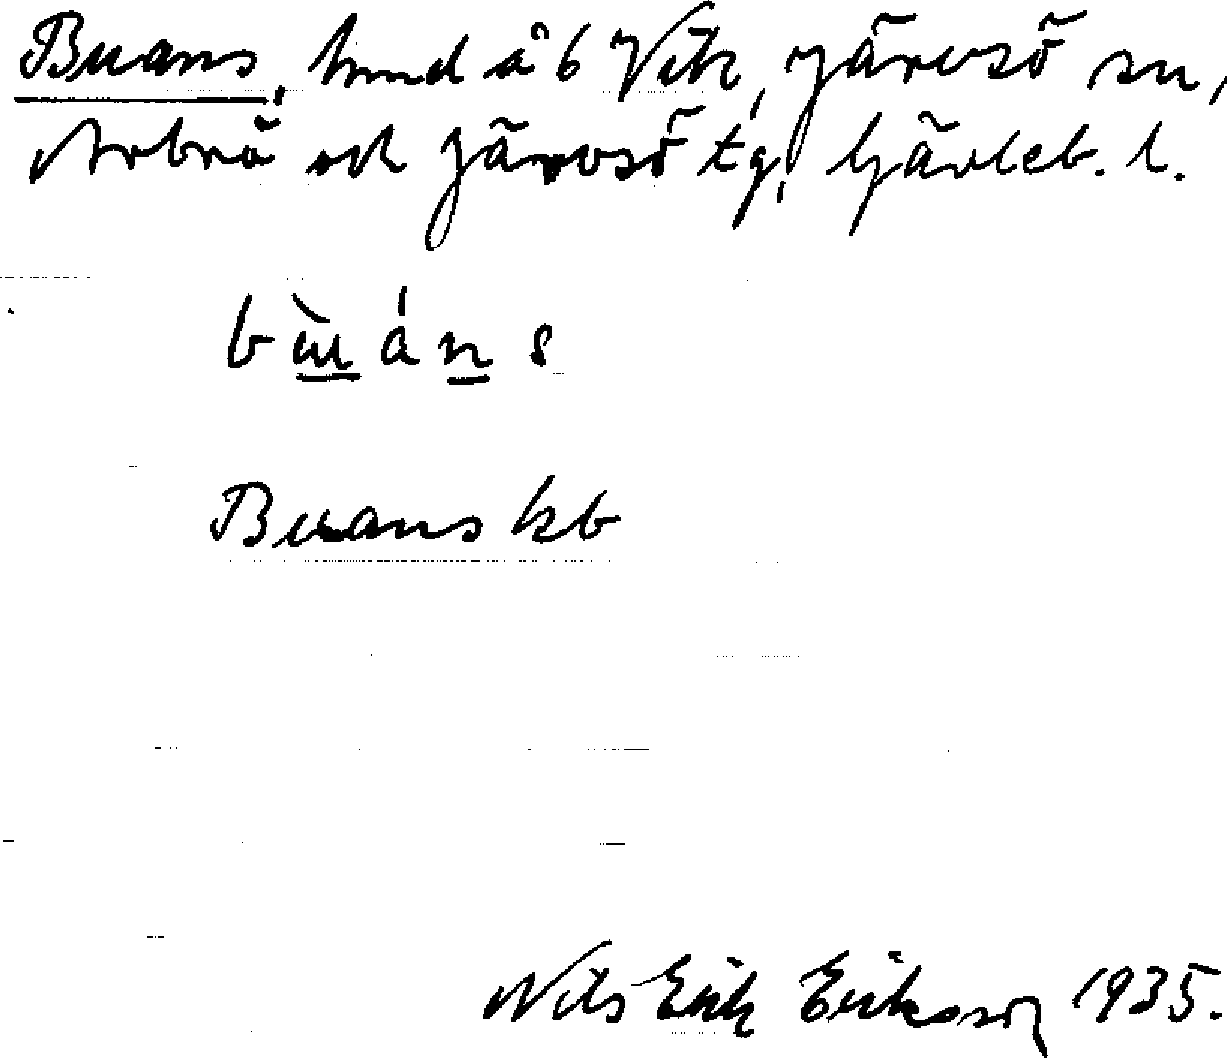 Buans, hmd å 6 Vik, Järvsö sn,
Arbrå och Järvsö tg, Gävleb. l.
bùáns
Buans kb
Nils Erik Eriksson 1935.